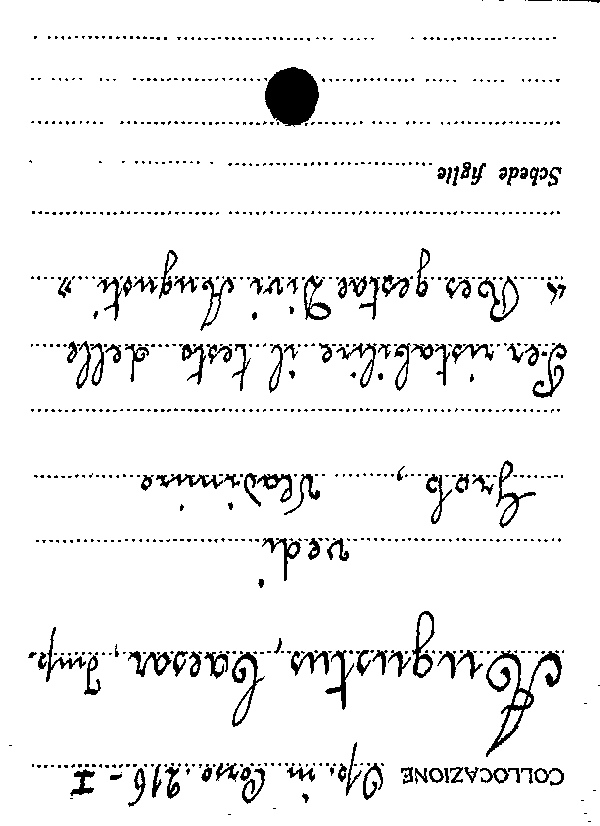 COLLOCAZIONE Op. in Corso. 216 - I
Augustus, Caesar, Imp.
vedi
Grob, Vladimiro
Per ristabilire il testo delle
« Res gestae Divi Augusti »
Schede figlie